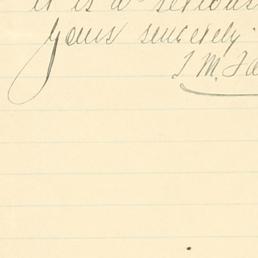 it is a serious
yours sincerely
T M. Fa